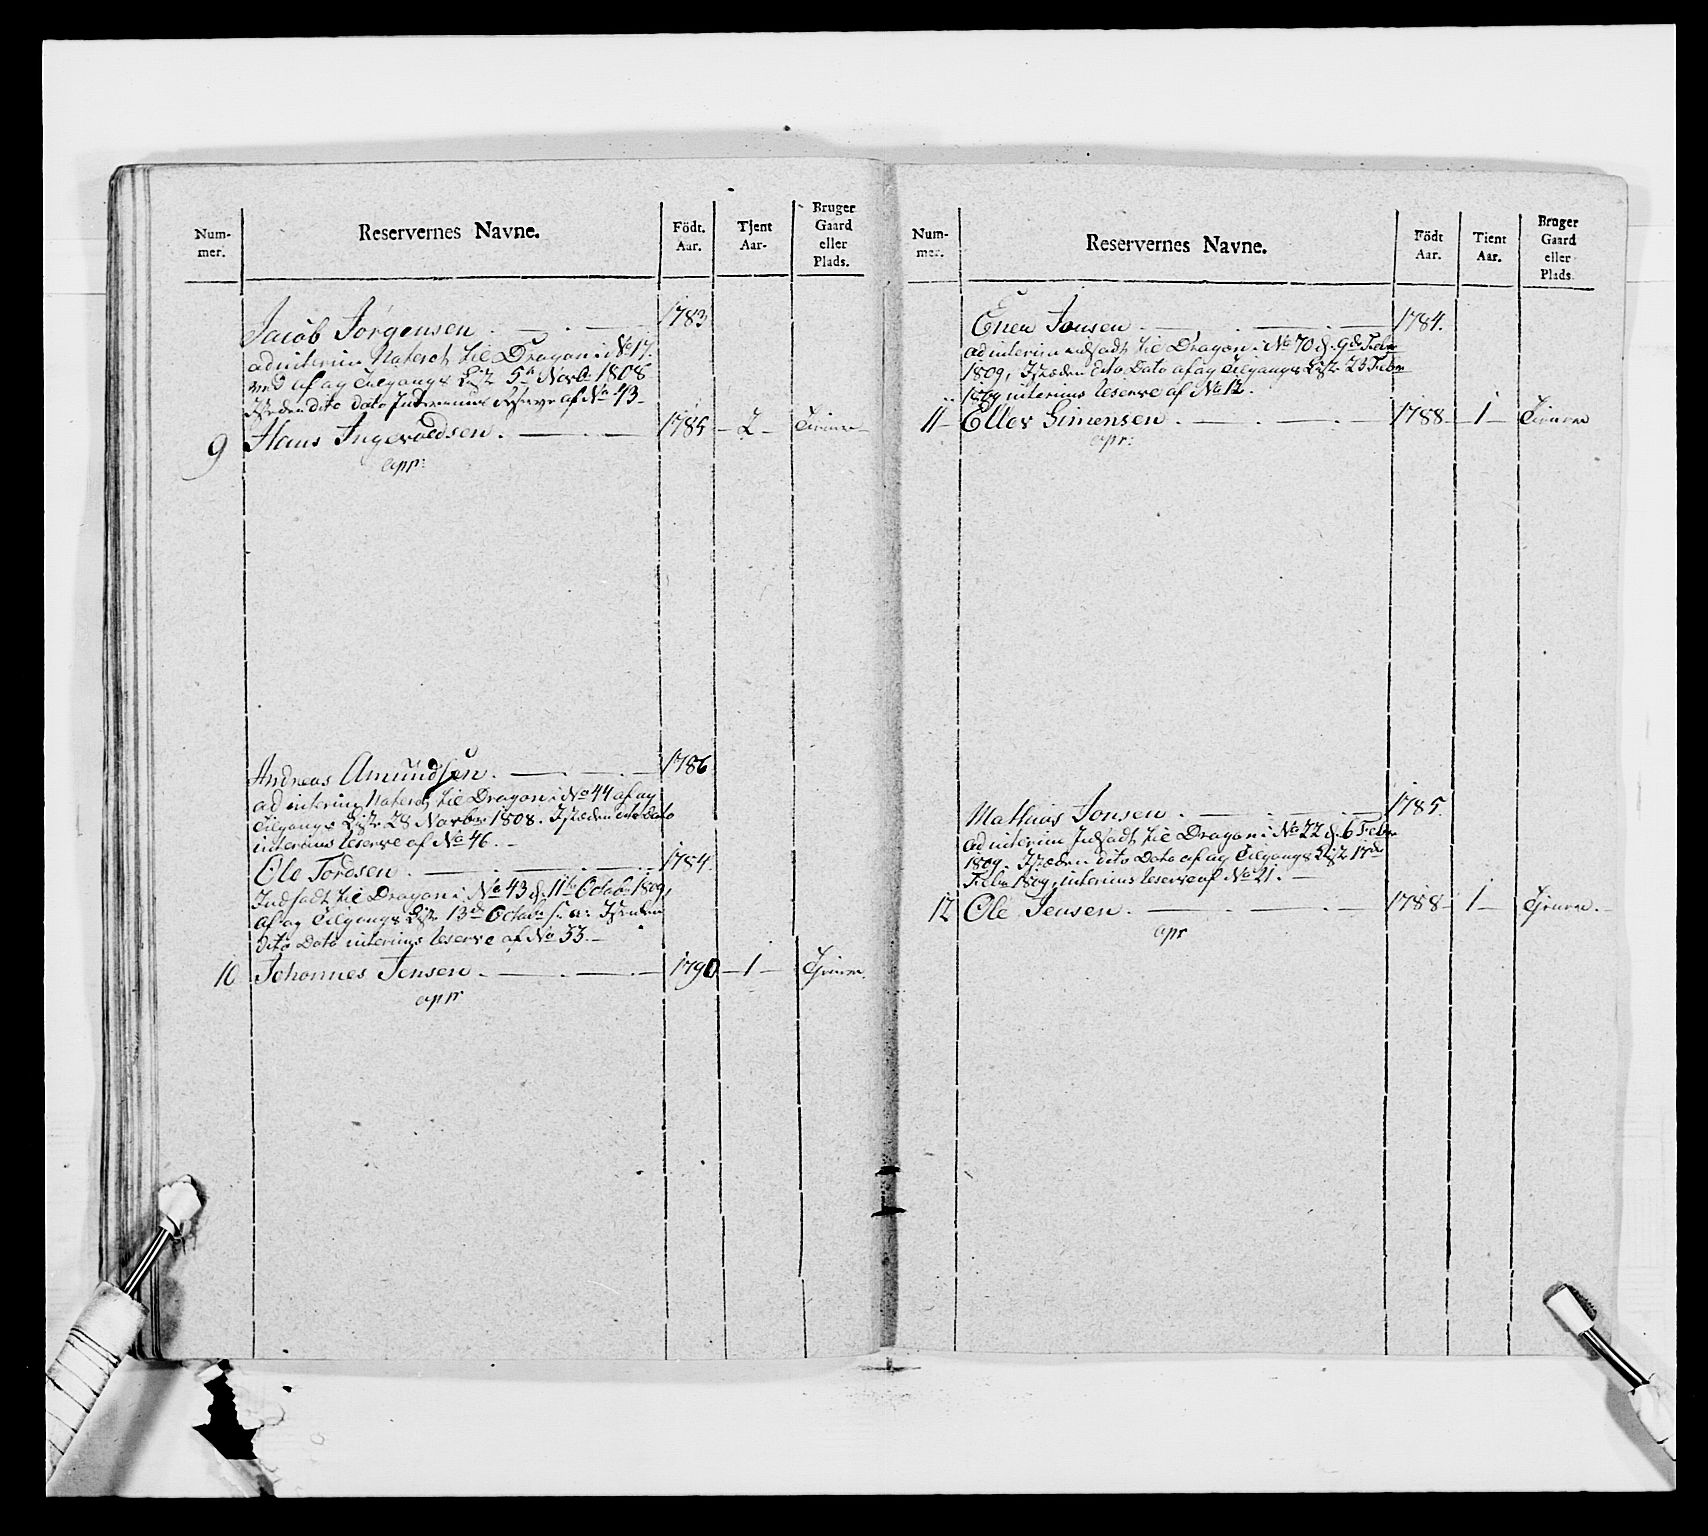 Num-
mer.
Reservernes Navne.
Födt.
Aar.
Tjent
Aar-
Bruger
Gaard
eller
Plads.
Jacob Jörgensen. 1783
ad interim til Dragon i No 17.
af ag Tilgangs Liste 5te Novbr 1808
dito dato Interims Reserve af No 43-
9 Hans Ingevoldsen. 1785 - 2 -
appr:
Andreas Amundsen. 1786
ad interim til Dragon i No 44 af ag
Tilgangs Liste 28 Novbr 1808. Isteden dito dato
interims Reserve af No 46. -
Ole Tordsen 1784.
Indsadt til Dragon i No 43 d. 11te Octob: 1809,
af ag Tilgangs Liste 13de Octobr s: a: Isteden
dito Dato interims Reserve af No 33. -
10 Johannes Jensen. 1790 - 1 - Tjener.
appr
Num-
mer.
Reservernes Navne.
Födt
Aar.
Tient
Aar.
Bruger
Gaard
eller
Plads.
Ener Jonsen. 1784.
ad interim indsadt til Dragon i No 70 d. 9de Febr
1809, Isteden dito Dato af ag Tilgangs Liste 23 Febr
1809 interims Reserve af No 12.
11- Ellev Simensen. 1788- 1 -
apr:
Mathias Jonsen. 1785.
ad interim Indsadt til Dragon i No 22 d. 6 Febr
1809. Isteden dito Dato af ag Tilgangs Liste 17de
Febr 1809, interims Reserve af No 21. -
12 Ole Jensen. 1788- 1 - Tjener. -
apr